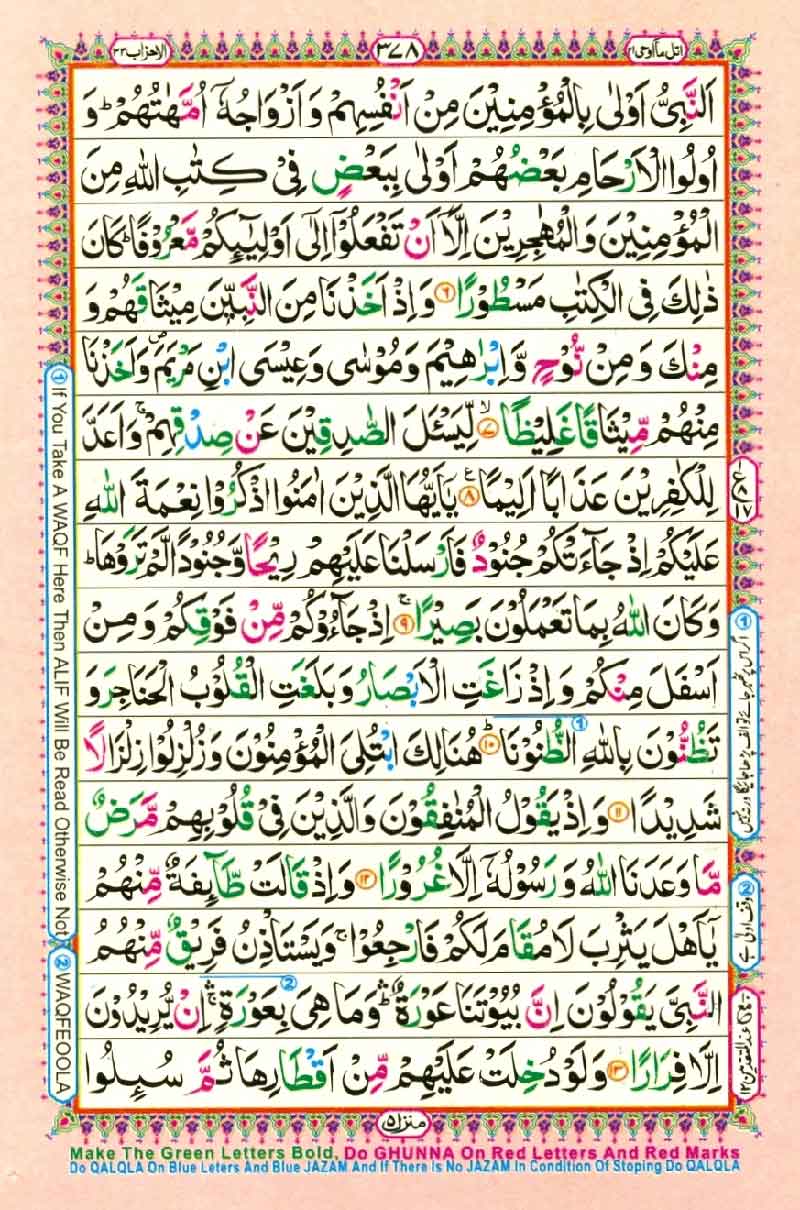 اتل مآ اوحی ۲۱
۳۷۸
الاحزاب ۳۳
اَلنَّبِیُّ اَوْلٰی بِالْمُؤْمِنِیْنَ مِنْ اَنْفُسِهِمْ وَ اَزْوَاجُهٗۤ اُمَّهٰتُهُمْ ؕ وَ
اُولُوا الْاَرْحَامِ بَعْضُهُمْ اَوْلٰی بِبَعْضٍ فِیْ كِتٰبِ اللّٰهِ مِنَ
الْمُؤْمِنِیْنَ وَالْمُهٰجِرِیْنَ اِلَّاۤ اَنْ تَفْعَلُوْۤا اِلٰۤی اَوْلِیٰٓىِٕكُمْ مَّعْرُوْفًا ؕ كَانَ
ذٰلِكَ فِی الْكِتٰبِ مَسْطُوْرًا ﴿۶﴾ وَ اِذْ اَخَذْنَا مِنَ النَّبِیّٖنَ مِیْثَاقَهُمْ وَ
مِنْكَ وَ مِنْ نُّوْحٍ وَّ اِبْرٰهِیْمَ وَ مُوْسٰی وَ عِیْسَی ابْنِ مَرْیَمَ ۪ وَ اَخَذْنَا
مِنْهُمْ مِّیْثَاقًا غَلِیْظًا ﴿۷﴾ۙ لِّیَسْـَٔلَ الصّٰدِقِیْنَ عَنْ صِدْقِهِمْ ۚ وَ اَعَدَّ
لِلْكٰفِرِیْنَ عَذَابًا اَلِیْمًا ﴿۸﴾ۧ یٰۤاَیُّهَا الَّذِیْنَ اٰمَنُوا اذْكُرُوْا نِعْمَةَ اللّٰهِ
عَلَیْكُمْ اِذْ جَآءَتْكُمْ جُنُوْدٌ فَاَرْسَلْنَا عَلَیْهِمْ رِیْحًا وَّ جُنُوْدًا لَّمْ تَرَوْهَا ؕ
وَ كَانَ اللّٰهُ بِمَا تَعْمَلُوْنَ بَصِیْرًا ﴿۹﴾ۚ اِذْ جَآءُوْكُمْ مِّنْ فَوْقِكُمْ وَ مِنْ
اَسْفَلَ مِنْكُمْ وَ اِذْ زَاغَتِ الْاَبْصَارُ وَ بَلَغَتِ الْقُلُوْبُ الْحَنَاجِرَ وَ
تَظُنُّوْنَ بِاللّٰهِ الظُّنُوْنَا ① ﴿۱۰﴾ؕ هُنَالِكَ ابْتُلِیَ الْمُؤْمِنُوْنَ وَ زُلْزِلُوْا زِلْزَالًا
شَدِیْدًا ﴿۱۱﴾ وَ اِذْ یَقُوْلُ الْمُنٰفِقُوْنَ وَ الَّذِیْنَ فِیْ قُلُوْبِهِمْ مَّرَضٌ
مَّا وَعَدَنَا اللّٰهُ وَ رَسُوْلُهٗۤ اِلَّا غُرُوْرًا ﴿۱۲﴾ وَ اِذْ قَالَتْ طَّآىِٕفَةٌ مِّنْهُمْ
یٰۤاَهْلَ یَثْرِبَ لَا مُقَامَ لَكُمْ فَارْجِعُوْا ۚ وَ یَسْتَاْذِنُ فَرِیْقٌ مِّنْهُمُ
النَّبِیَّ یَقُوْلُوْنَ اِنَّ بُیُوْتَنَا عَوْرَةٌ ۛؕ وَ مَا هِیَ بِعَوْرَةٍ ② ۛۚ اِنْ یُّرِیْدُوْنَ
اِلَّا فِرَارًا ﴿۱۳﴾ وَ لَوْ دُخِلَتْ عَلَیْهِمْ مِّنْ اَقْطَارِهَا ثُمَّ سُىِٕلُوا
منزل ۵
① If You Take A WAQF Here Then ALIF Will Be Read Otherwise Not
② WAQFEOOLA
② وقف اولی ہے
Make The Green Letters Bold, Do GHUNNA On Red Letters And Red Marks
Do QALQLA On Blue Leters And Blue JAZAM And If There Is No JAZAM In Condition Of Stoping Do QALQLA